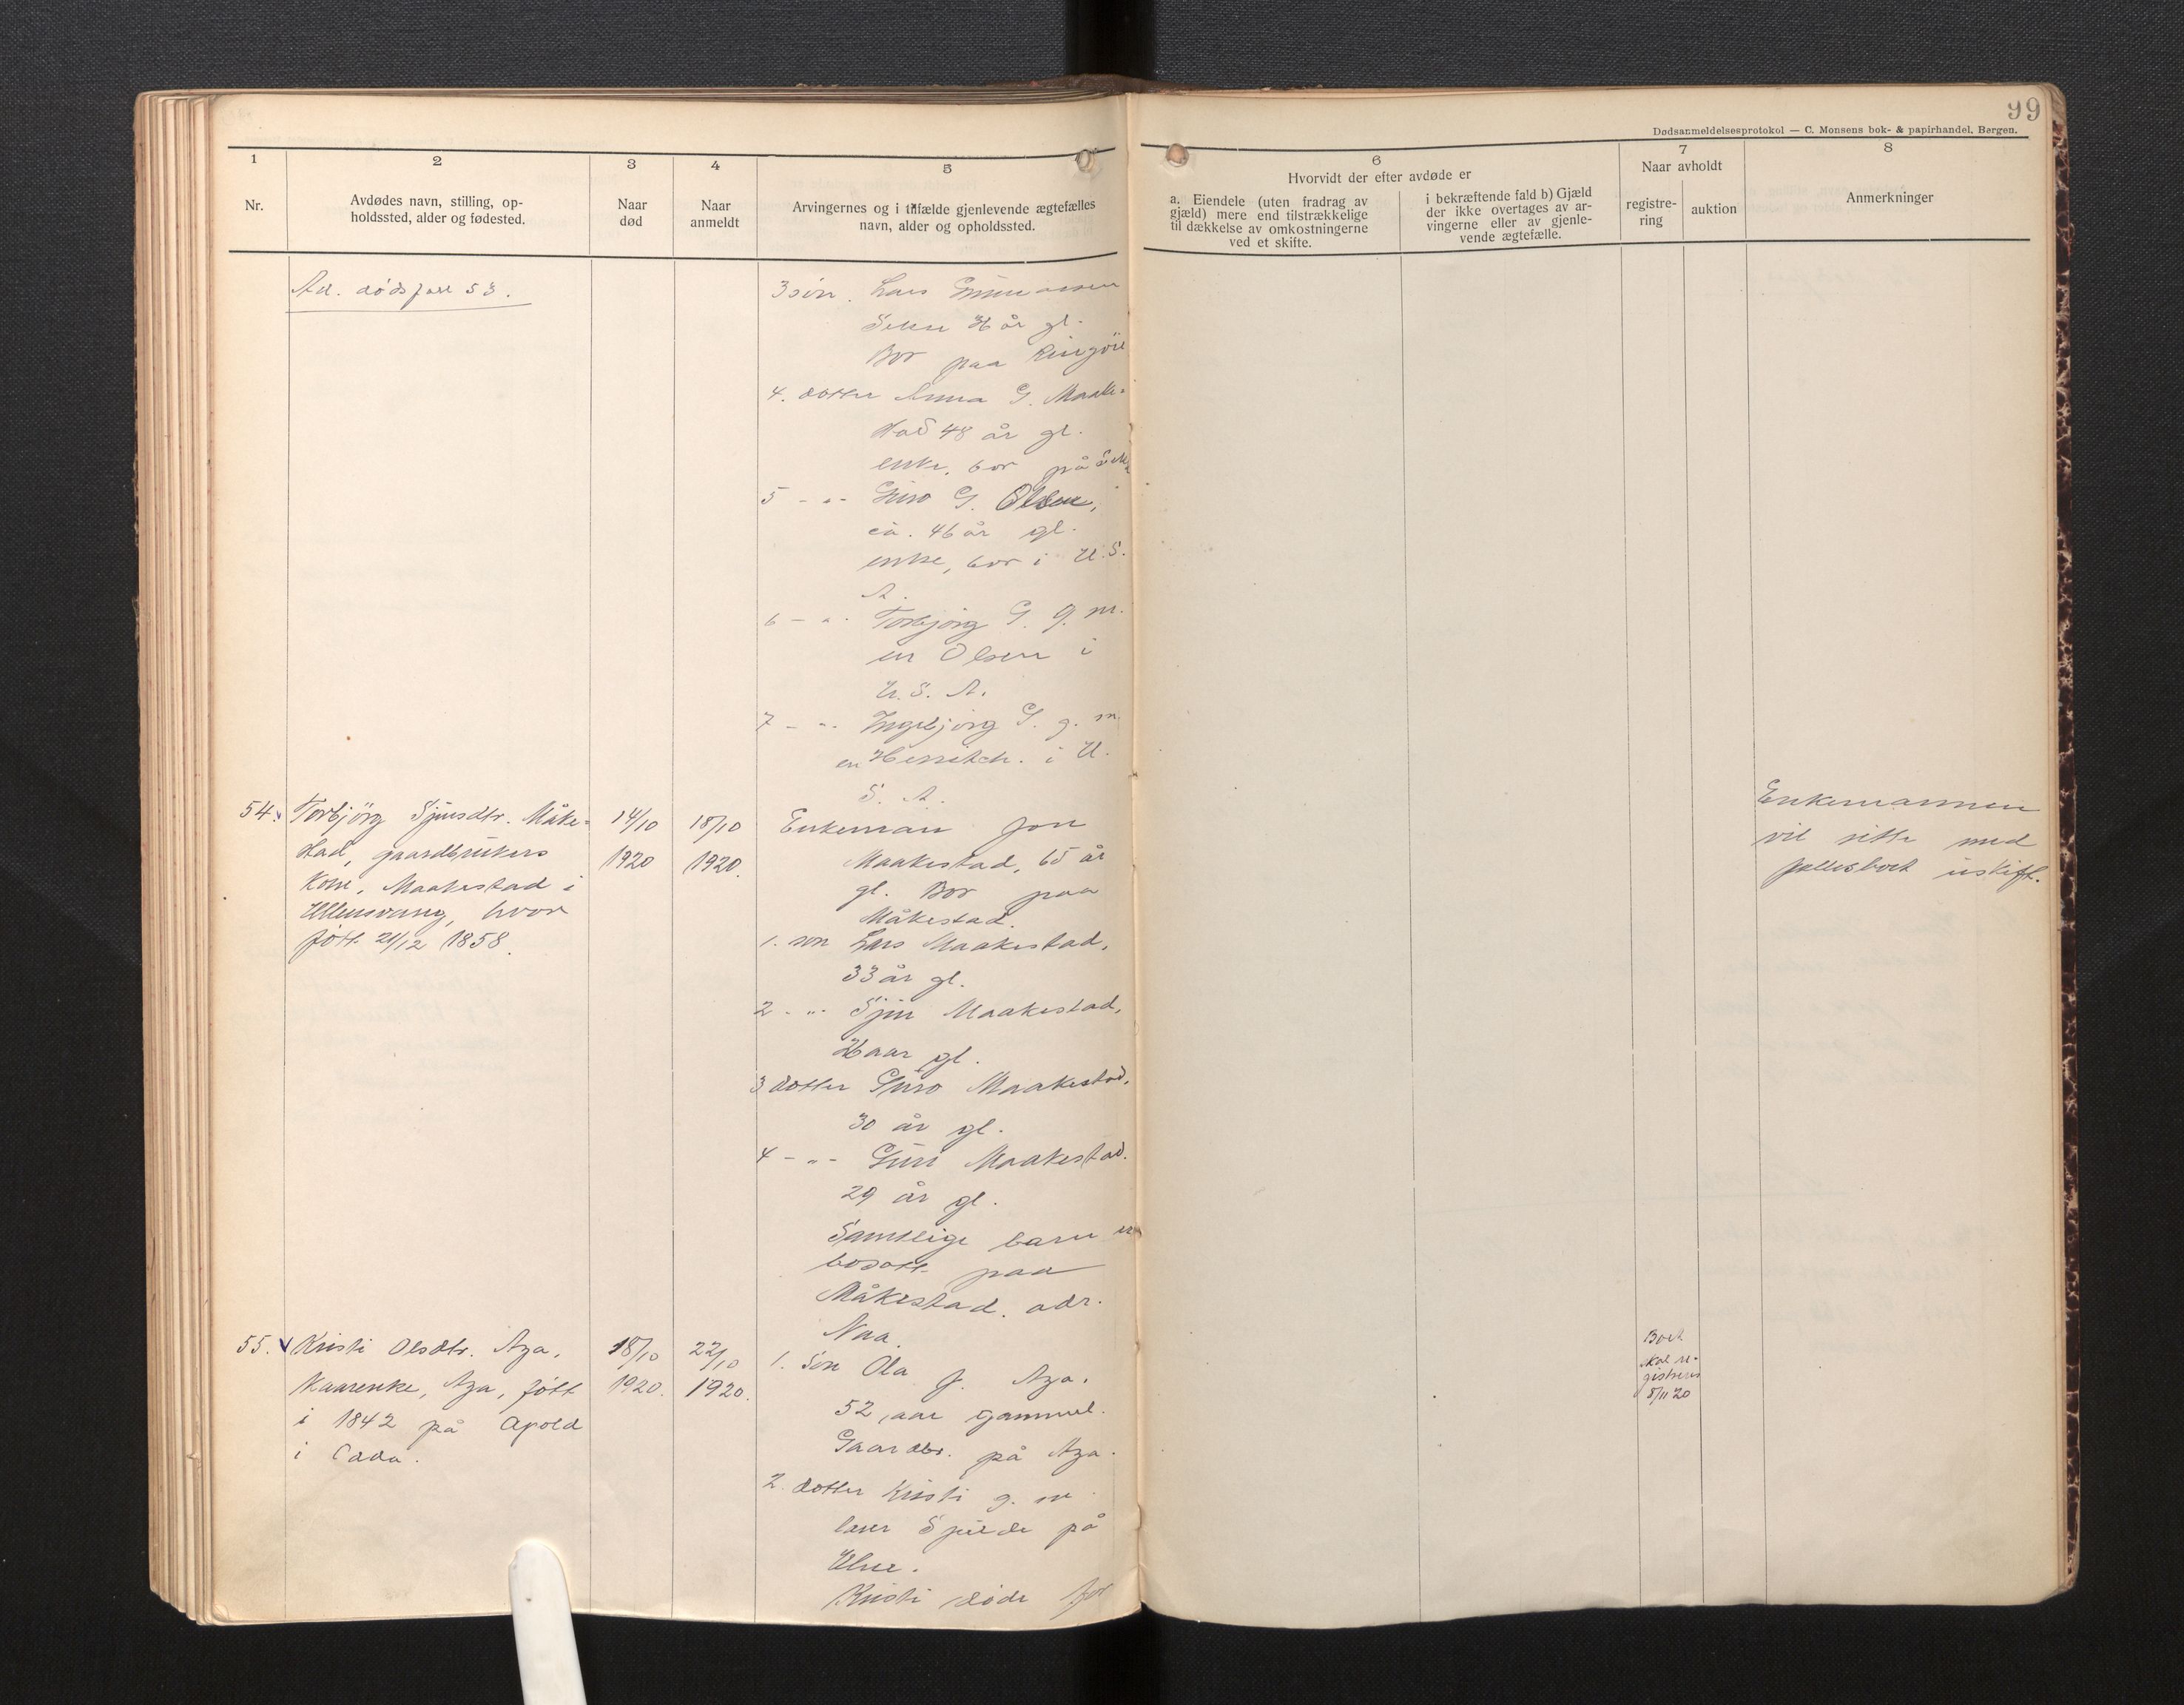 99
Dødsanmeldelsesprotokol — C. Monsens bok- & papirhandel, Bergen.
1
2
3
4
5
6
7
8
Nr.
Avdødes navn, stilling, op-
holdssted, alder og fødested.
Naar
død
Naar
anmeldt
Arvingernes og i tilfælde gjenlevende ægtefælles
navn, alder og opholdssted.
Hvorvidt der efter avdøde er
a. Eiendele (uten fradrag av
gjæld) mere end tilstrækkelige
til dækkelse av omkostningerne
ved et skifte.
i bekræftende fald b) Gjæld
der ikke overtages av ar-
vingerne eller av gjenle-
vende ægtefælle.
Naar avholdt
registre-
ring
auktion
Anmerkninger
Ad. dødsfall 53.
3 søn. Lars
36 år gl.
Bor paa
4. dotter Anna G. Maake-
stad 48 år gl.
enke, bor på
5 - " - Guro G. Olsen,
ca. 46 år gl.
enke, bor i U.S.
A.
6 - " - Torbjørg G. g. m.
en Olsen i
U. S. A.
7 - " - Ingebjørg G. g. m.
en i U.
S. A.
54.
Torbjörg Sjursdtr. Måke-
stad, gaardbrukers
kone, Maakestad i
Ullensvang, hvor
fött 21/12 1858.
14/10
1920
18/10
1920.
Enkeman Jon
Maakestad, 65 år
gl. Bor paa
Måkestad.
1. søn Lars Maakestad,
33 år gl.
2 - " - Sjur Maakestad,
26 aar gl.
3 dotter Guro Maakestad,
30 år gl.
4 - " - Guri Maakestad.
29 år gl.
Samtlige barn er
bosatt paa
Måkestad. adr.
Naa.
Enkemannen
vil sitte med
fellesboet uskift.
55.
Kristi Olsdtr. Aga,
Kaarenke, Aga, fött
i 1842 på Apold
i Odda.
18/10
1920.
22/10
1920.
1. Søn Ola J. Aga.
52 aar gammel.
Gaardbr. på Aga.
2. dotter Kristi g. m.
Lars Spilde på
Kristi døde for
Boet
skal re-
gistreres
5/11 20